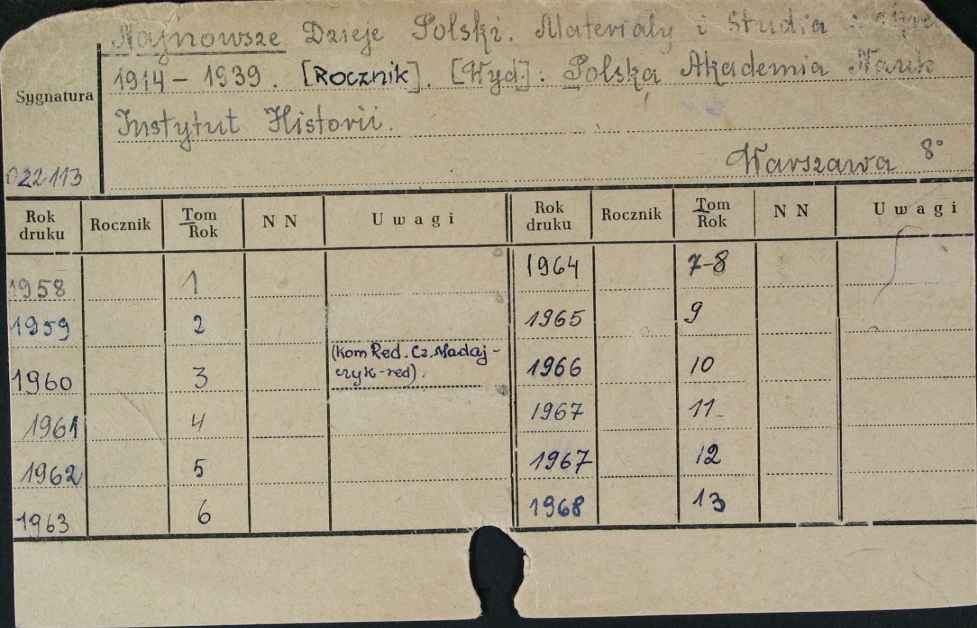 Najnowsze Dzieje Polski. Materiały i Studia
1914 – 1939. [Rocznik]. [Wyd.]: Polska Akademia Nauk
Sygnatura
Instytut Historii.
Warszawa 8°
022113
Rok druku Rocznik Tom/Rok NN Uwagi Rok druku Rocznik Tom/Rok NN Uwagi
1958 1 1964 7-8
1959 2 1965 9
1960 3 (Kom Red. Cz. Madaj-
czyk-red). 1966 10
1961 4 1967 11
1962 5 1967 12
1963 6 1968 13